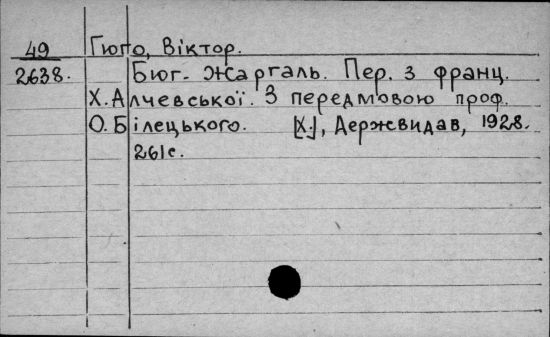 49 Гюго, Віктор.
2638. Бюг-Жаргаль. Пер. з франц.
Х. Алчевської. З передмовою проф.
О. Білецького. [Х.], Держвидав, 1928.
261с.